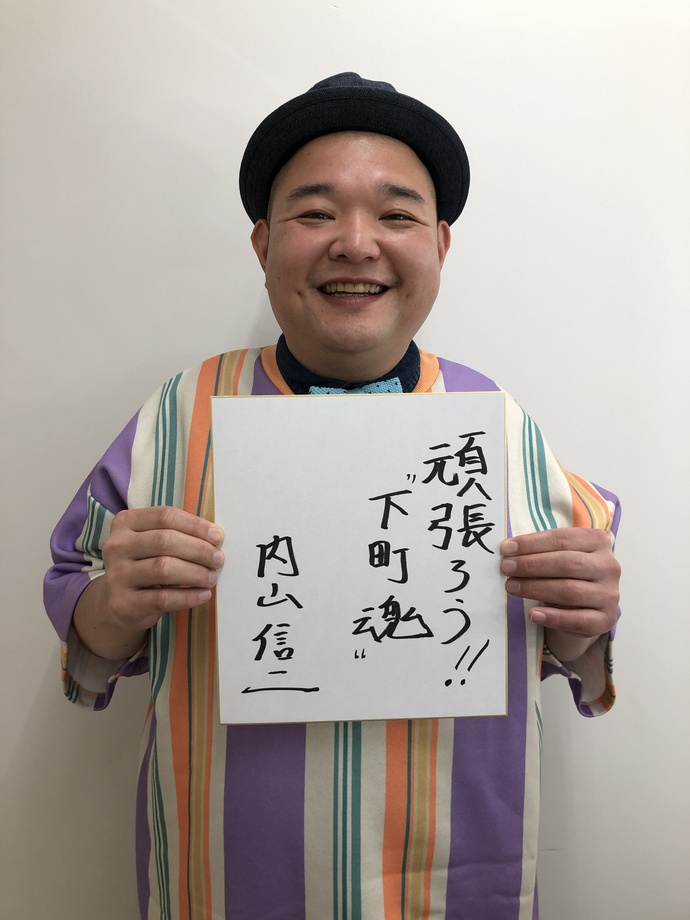 頑張ろう!!
"下町魂"
内山信二